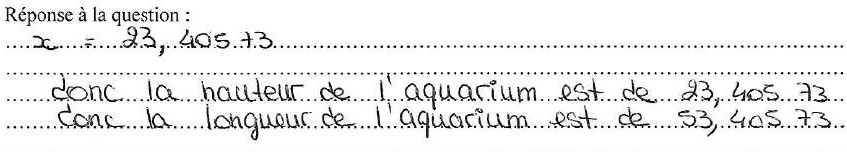 Réponse à la question :
x = 23,405 73
donc la hauteur de l'aquarium est de 23,405 73
donc la longueur de l'aquarium est de 53,405 73